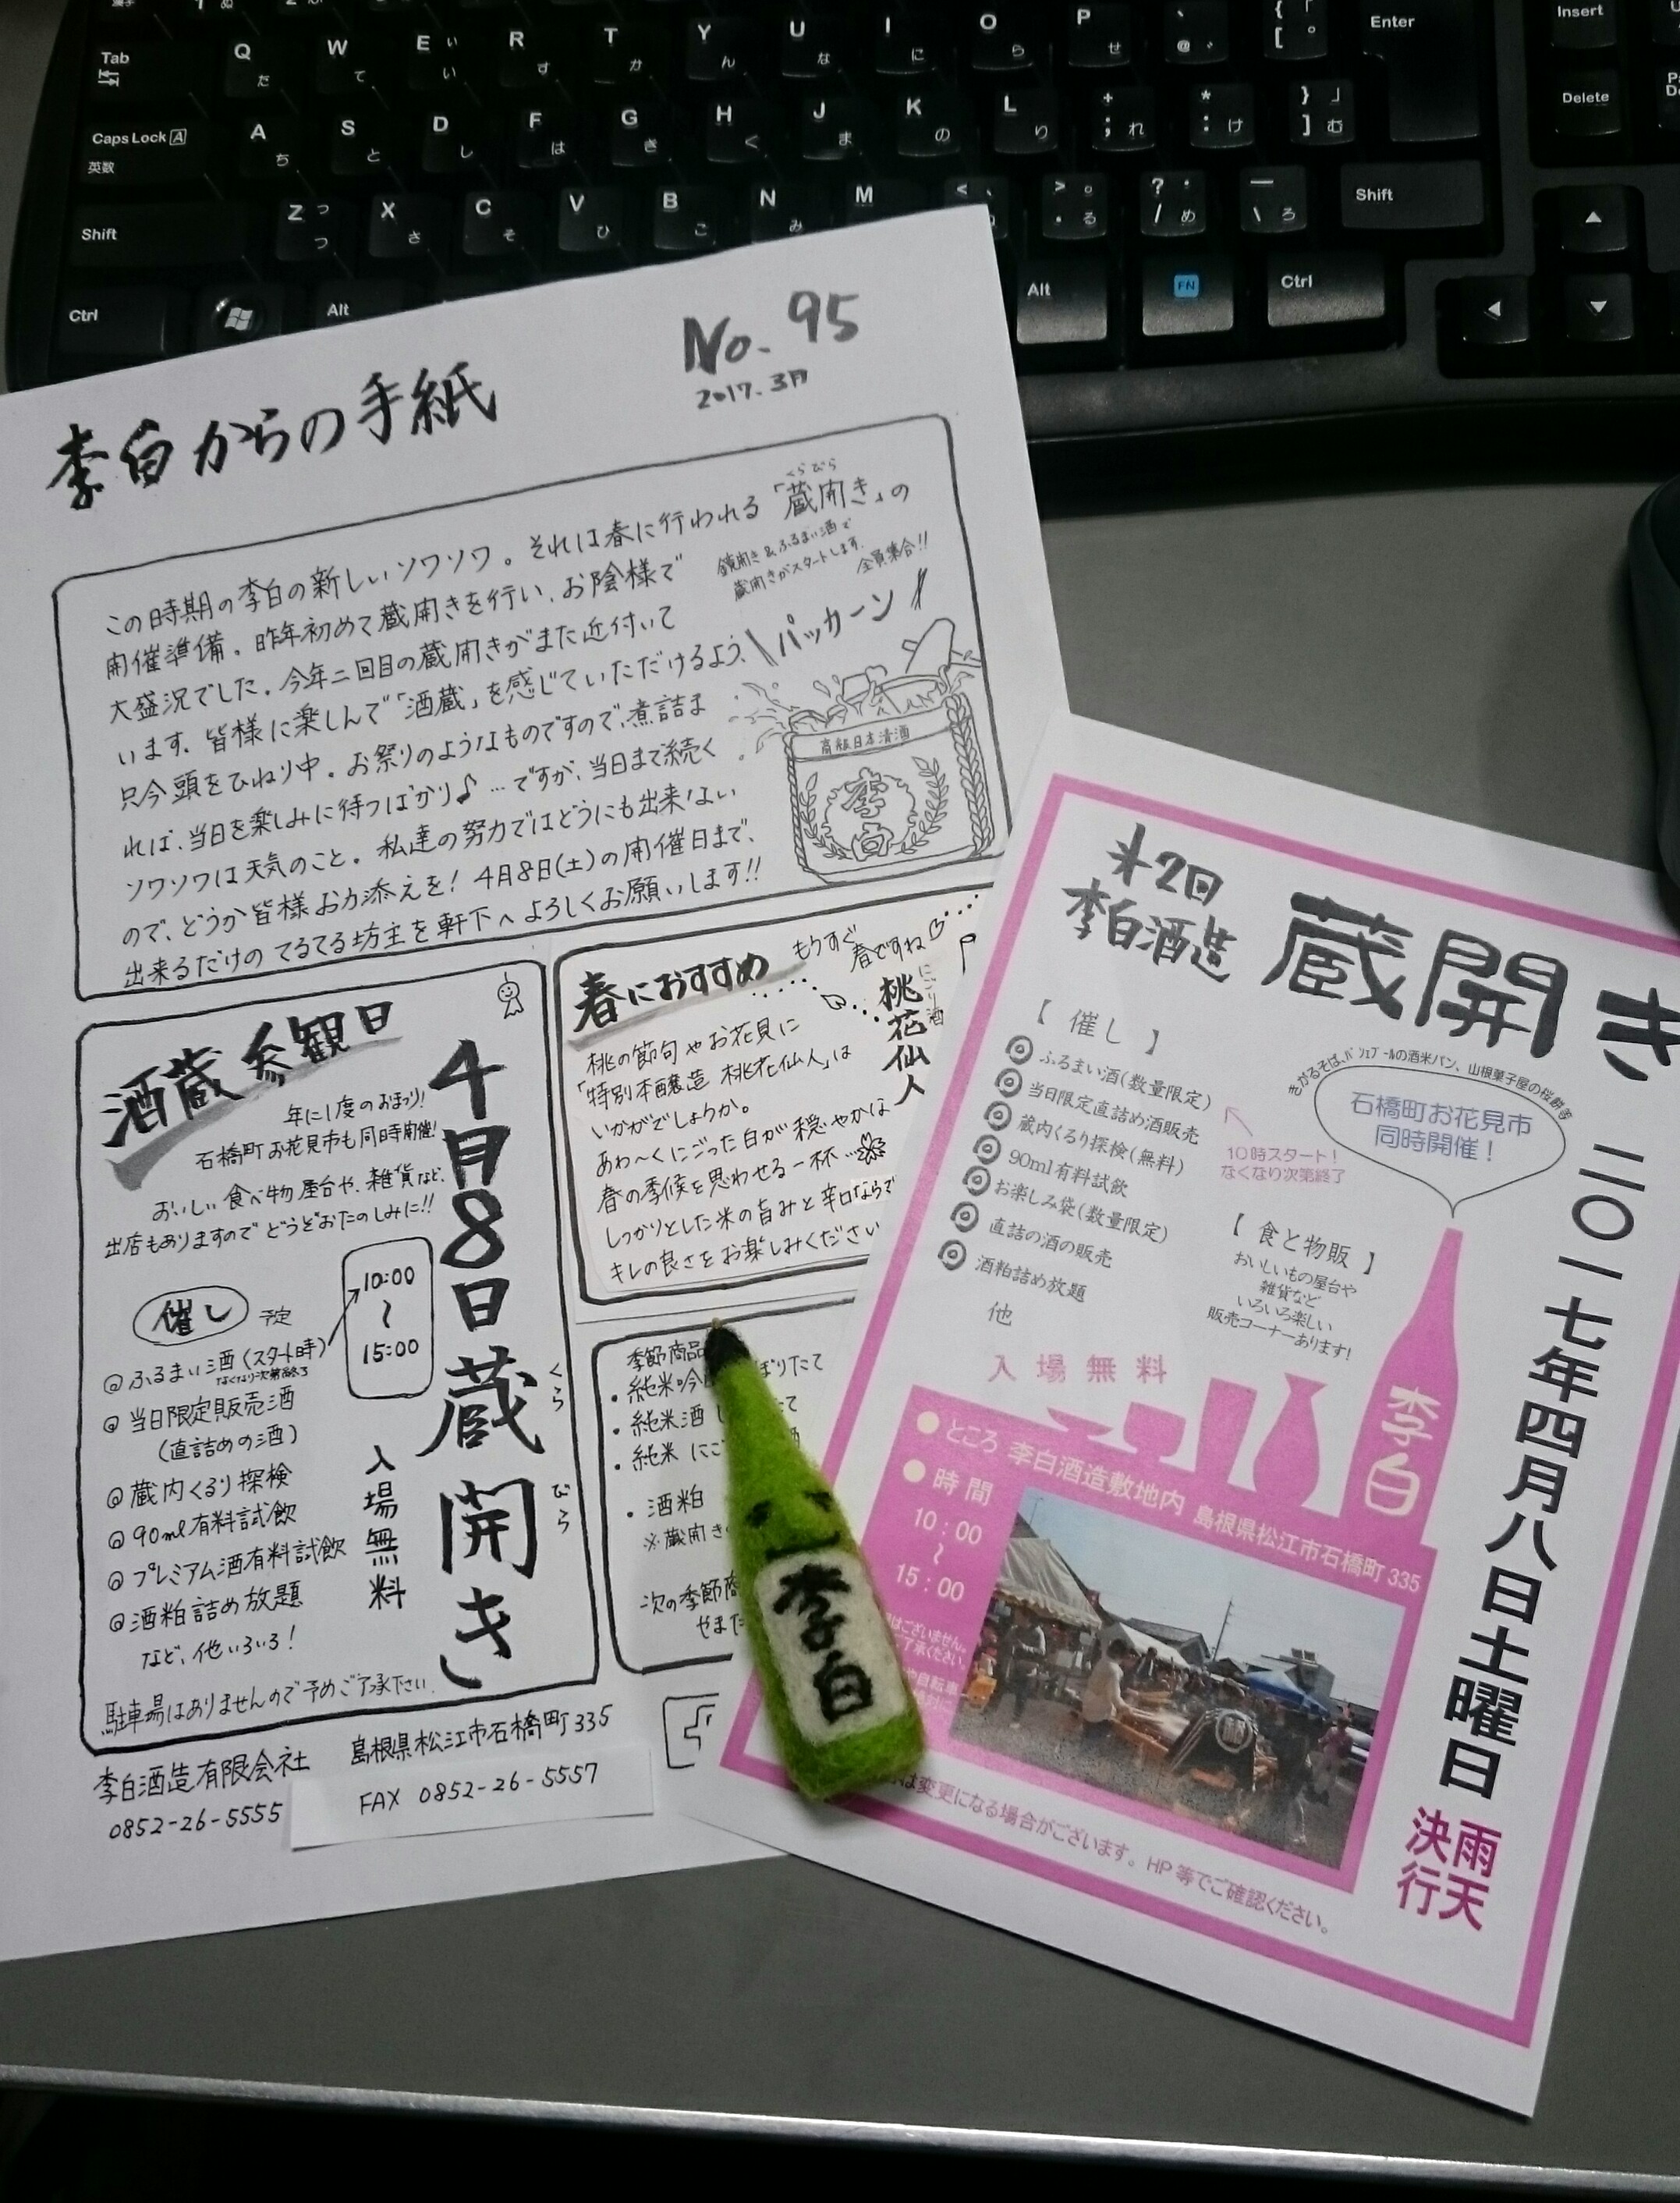 Tab
Q
た
W
て
E
い
R
す
T
か
Y
ん
U
な
I
に
O
ら
P
せ
Enter
Insert
Delete
Caps Lock A
英数
A
ち
S
と
D
し
F
は
G
き
H
く
J
ま
K
の
L
り
れ
け
む
Shift
Z
つ
X
さ
C
そ
V
ひ
B
こ
N
み
M
る
め
ろ
Shift
Ctrl
Alt
Alt
FN
Ctrl
No. 95
2017.3月
李白からの手紙
この時期の李白の新しいソワソワ。それは春に行われる「蔵開き」の
くらびら
開催準備。昨年初めて蔵開きを行い、お陰様で
大盛況でした。今年二回目の蔵開きがまた近付いて
います。皆様に楽しんで「酒蔵」を感じていただけるよう、
只今頭をひねり中。お祭りのようなものですので、煮詰ま
れば、当日を楽しみに待つばかり♪…ですが、当日まで続く
ソワソワは天気のこと。私達の努力ではどうにも出来ない
ので、どうか皆様お力添えを!4月8日(土)の開催日まで、
出来るだけのてるてる坊主を軒下へよろしくお願いします!!
鏡開き&ふるまい酒で
蔵開きがスタートします。
全員集合!!
パッカーン
日本清酒
李白
酒蔵参観日
年に1度のおまつり!
石橋町お花見市も同時開催!
おいしい食べ物屋台や、雑貨など、
出店もありますのでどうぞおたのしみに!!
催し 予定
10:00
〜
15:00
@ふるまい酒(スタート時)
なくなり次第終了
@当日限定販売酒
(直詰めの酒)
@蔵内くるり探検
@90ml有料試飲
@プレミアム酒有料試飲
@酒粕詰め放題
など、他いろいろ!
入場無料
4月8日蔵開き
くら びら
駐車場はありませんので予めご了承下さい。
李白酒造有限会社
島根県松江市石橋町335
0852-26-5555
FAX 0852-26-5557
春におすすめ
もうすぐ
春ですね
にごり酒
桃花仙人
桃の節句やお花見に
「特別本醸造 桃花仙人」は
いかがでしょうか。
あわ〜くにごった白が穏やかな
春の季候を思わせる一杯…
しっかりとした米の旨みと辛口ならで
キレの良さをお楽しみください
季節商品
・純米吟
ぼりたて
・純米酒 し
たて
・純米 にご
酒
・酒粕
※蔵開き
次の季節商
やまた
第2回
李白酒造
蔵開き
【催し】
ふるまい酒(数量限定)
当日限定直詰め酒販売
蔵内くるり探検(無料)
90ml有料試飲
お楽しみ袋(数量限定)
直詰の酒の販売
酒粕詰め放題
他
10時スタート!
なくなり次第終了
きがるそば、パンェプールの酒米パン、山根菓子屋の桜餅等
石橋町お花見市
同時開催!
【食と物販】
おいしいもの屋台や
雑貨など
いろいろ楽しい
販売コーナーあります!
入場無料
李白
二〇一七年四月八日土曜日
雨天
決行
ところ 李白酒造敷地内 島根県松江市石橋町335
時間
10:00
〜
15:00
はございません。
了承ください。
や自転車
絶対に
は変更になる場合がございます。HP等でご確認ください。
李白